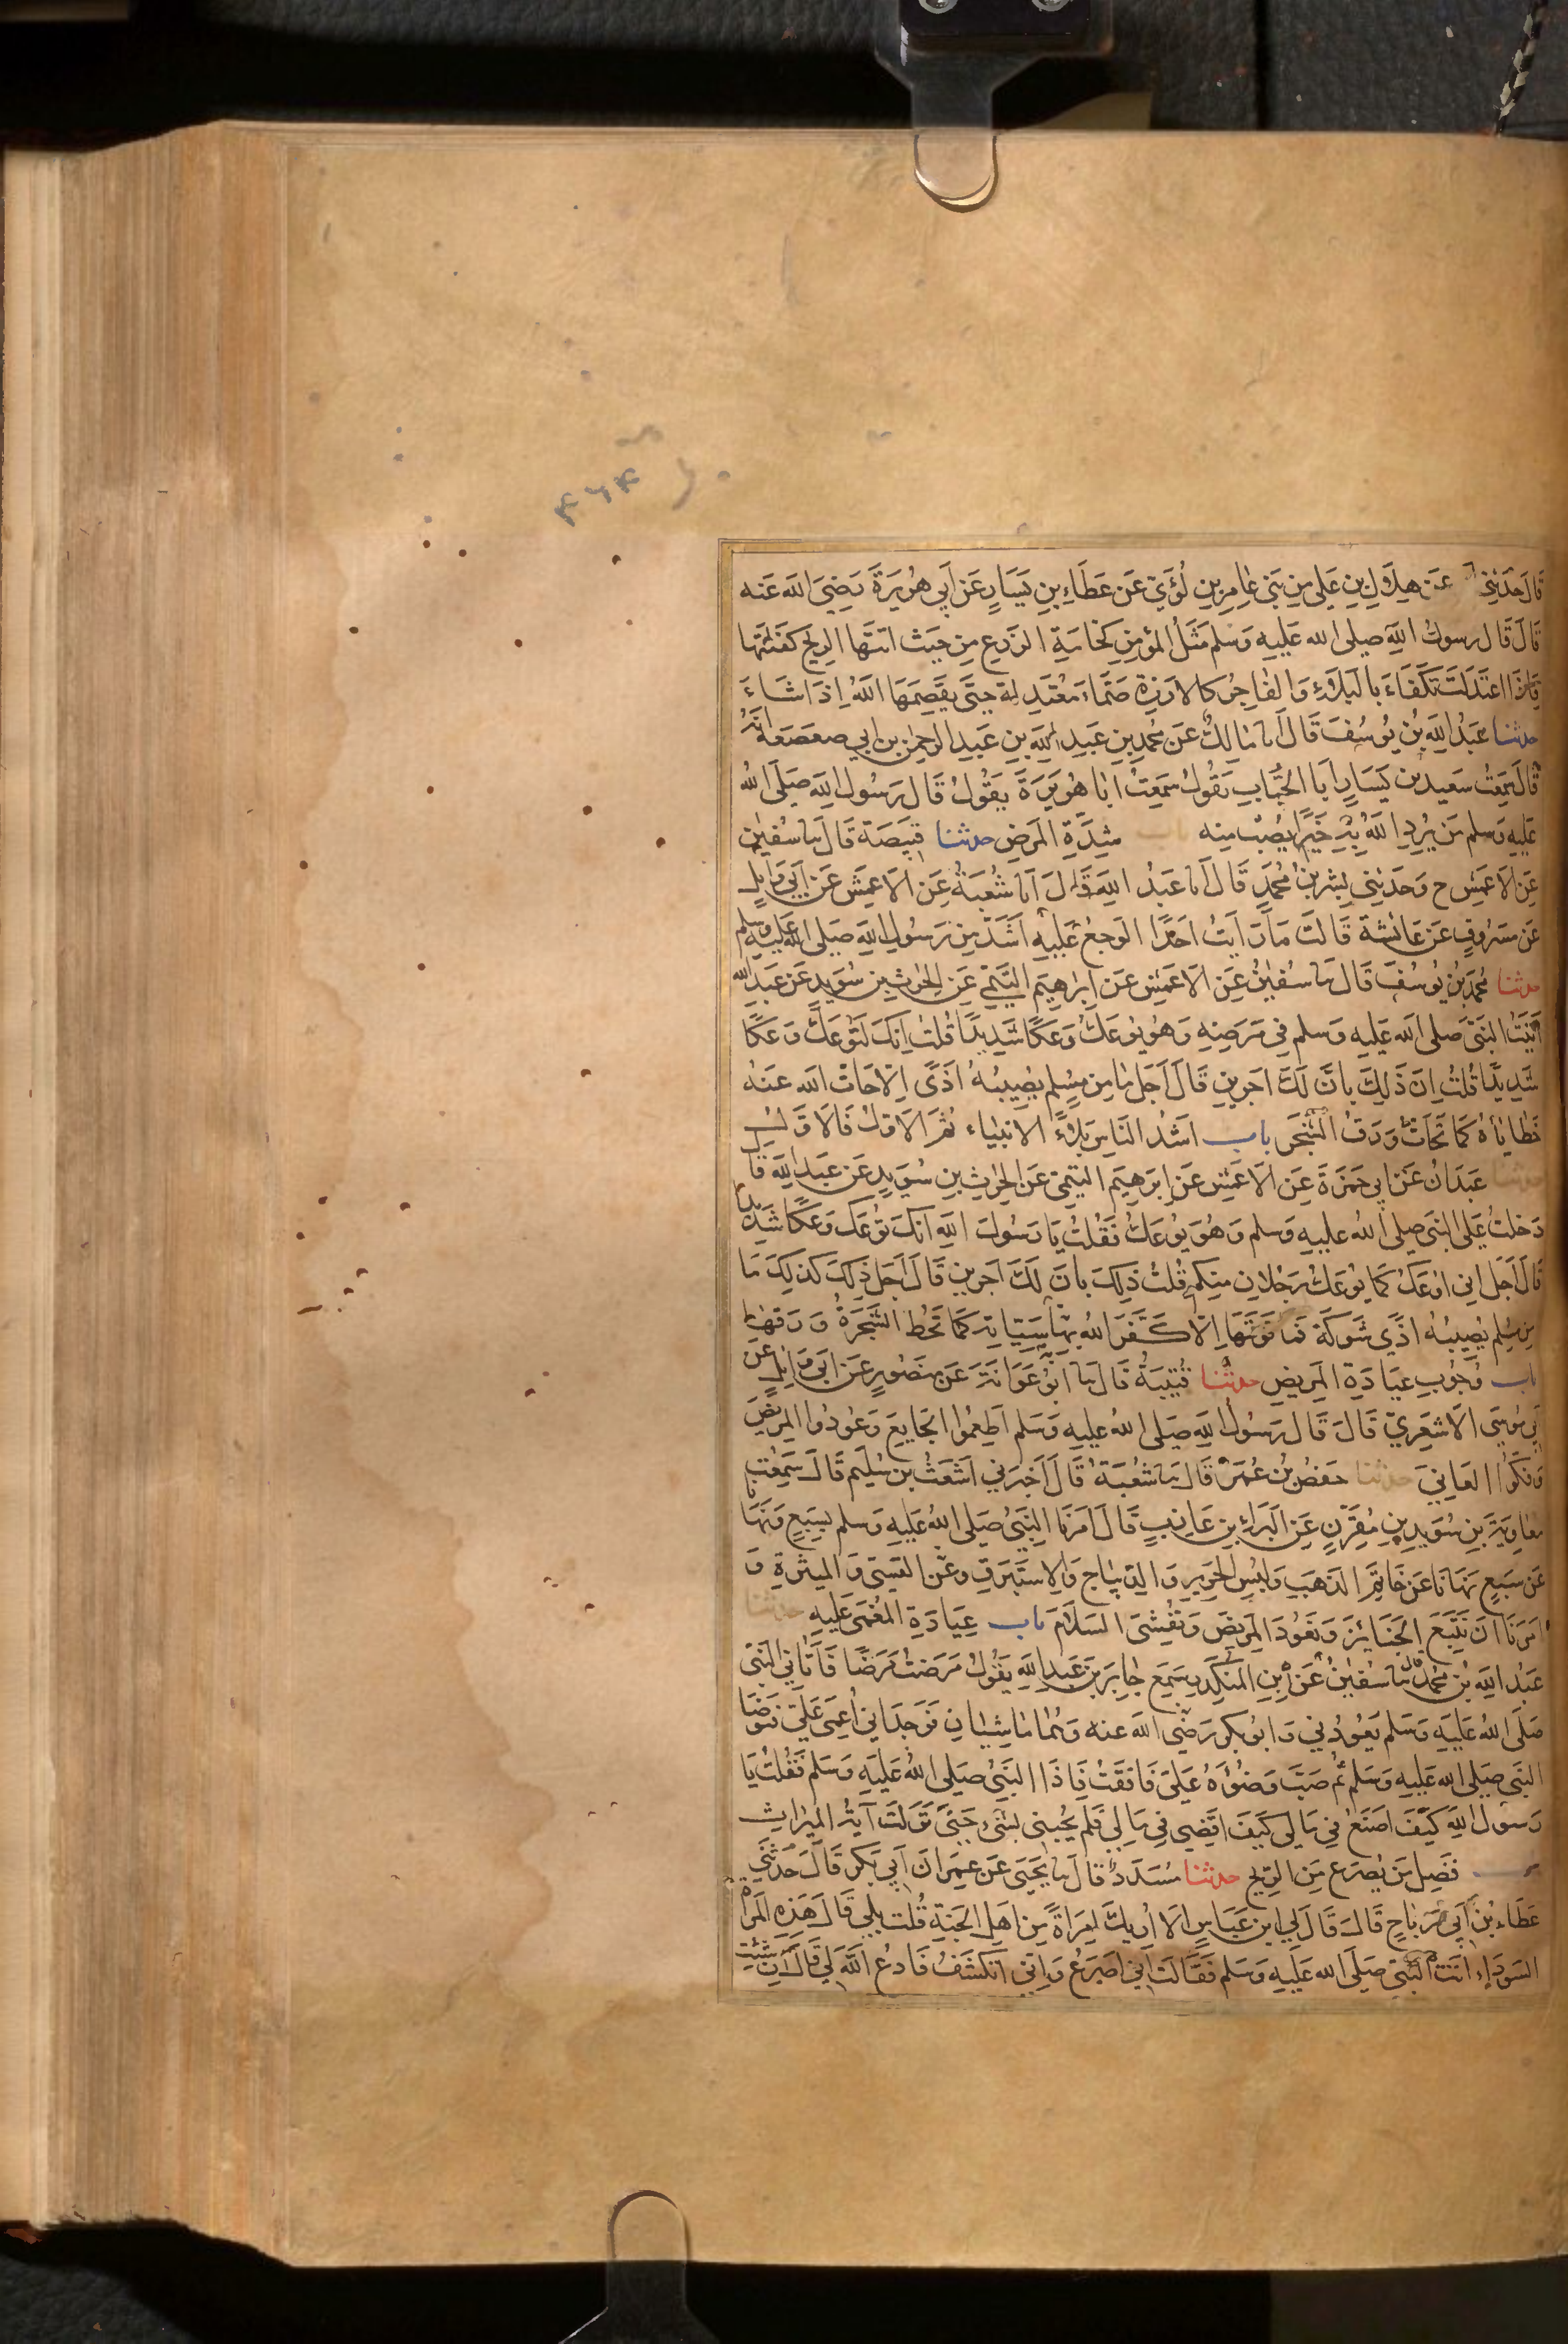 ٤٦٤
قَالَ حَدَثَنِي عَن هِلَالِ بِن عَلِي مِن بَني عَامِرِ بنِ لُؤَيٍّ عَن عَطَاءِ بنِ يَسَارٍ عَن أَبي هُرَيرَةَ رَضِيَ الله عَنه
قَالَ قَالَ رسولُ اللهِ صلى الله عَليه وَسَلم مَثَلُ المؤمِنِ كَخَامَةِ الزَرعِ مِن حَيث اتتهَا الرِيح كَفَتَتْها
فَاِذَا اعتَدَلَت تَكَفَّاءَ بالبَلَاءِ وَالفَاجِرُ كالارزة صَمَّاءَ مُعْتَدِلة حتَّى يَقصِمَهَا اللهُ اِذَا شَاءَ
حدثنا عَبدُ اللهِ بنُ يُوسُفَ قَالَ اَنا مَالِكٌ عَن مُحمدِ بنِ عَبدِ اللهِ بنِ عَبدِ الرحمنِ بن ابي صعصَعَة اَنه
قَالَ سَمِعتُ سَعيد بن يَسَارٍ اَبَا الحُبَابِ يَقُولُ سَمِعتُ ابَا هُرَيرَةَ يَقُولُ قَالَ رَسُولُ اللهِ صَلَى اللهُ
عَليهِ وَسلم مَن يُرِدِ اللهُ بهِ خَيراً يُصِبْ مِنه باب شِدَّةِ المَرَضِ حدثنا قَبِيصَة قَالَ نا سُفيٰن
عَن الاَعمَشِ ح وَحَدثَني بِشر بنُ مُحمَّدٍ قَالَ اَنا عَبدُ اللهِ قَالَ اَنا شُعبَةُ عَن الاَعمَشِ عَن اَبي وَائِلٍ
عَن مَسرُوقٍ عَن عَائشَة قَالَت مَا رَايتُ احَدًا الوَجعُ عَليهِ اَشَدّ مِن رَسُولِ اللهِ صَلى الله عَليهِ وسلم
حدثنا مُحمَّد بنُ يُوسُفَ قَالَ نا سُفيٰنُ عَن الاَعمَشِ عَن اِبرٰهيمَ التَّيميّ عَن الحٰرثِ بن سُوَيدٍ عَن عَبدِ الله
اَتَيتُ النبَيَّ صَلى الله عَليهِ وَسلم فِي مَرَضِهِ وَهُو يُوعَكُ وَعَكًا شَدِيدًا قُلتُ اِنكَ لَتُوعَكُ وَعَكًا
شَدِيدًا قُلتُ اِنَّ ذَلِكَ بانَّ لَكَ اَجرَينِ قَالَ اَجَل مَا مِن مُسلِم يُصِيبُهُ اَذًى اِلّا حَاتَّ الله عَنهُ
خَطَايَاهُ كَمَا تَحَاتُّ وَرَقُ الشَّجَرِ باب اَشَدُّ النَاسِ بَلاءً الانبيَاء ثُمَ الاَولُ فَالاَولُ
حدثنا عَبدَانُ عَن ابي حَمزَةَ عَن الاَعمَشِ عَن اِبرَهِيَم التَيمِيّ عَن الحٰرثِ بنِ سُوَيدٍ عَن عَبدِ اللهِ قَا
دَخَلتُ عَلى النبيّ صَلى اللهُ عليهِ وَسلم وَهُوَ يُوعَكُ فَقُلتُ يَا رَسُولَ اللهِ انَّكَ تُوعَكُ وَعَكًا شَدِيدًا
قَالَ اَجَل اِني اوعَكُ كَمَا يُوعَكُ رَجُلانِ مِنكم قُلتُ ذَلِكَ بانَّ لَكَ اَجرَينِ قَالَ اَجَل ذَلِكَ كَذلِكَ مَا
مِن مُسلِم يُصِيبُهُ اَذًى شَوكَة فَمَا فَوقَهَا اِلّا كَفَّرَ اللهُ بهَا سَيئَاتهِ كَمَا تَحُط الشَّجَرَةُ وَرَقَهَا
باب وُجُوبِ عِيَادَةِ المَرِيضِ حدثنا قُتَيبَةُ قَالَ نا اَبُو عَوَانَة عَن مَنصُورٍ عَن اَبي وَائِلٍ عَن
اَبي مُوسَى الاَشعَرِيّ قَالَ قَالَ رَسُولُ اللهِ صَلى اللهُ عليهِ وَسَلم اَطعِمُوا الجَائِعَ وَعُودُوا المَرِيضَ
وَفكّوا العَانِيَ حدثنا حَفصُ بنُ عُمَرَ قَالَ نا شُعبَةُ قَالَ اَخبَرني اَشعَثُ بن سُلَيم قَالَ سَمِعتُ
مُعَاوِيَةَ بن سُوَيدِ بنِ مُقَرِّنٍ عَن البَرَاءِ بن عَازِبٍ قَالَ اَمَرَنَا النبيُّ صَلى اللهُ عَليهِ وَسلم بِسَبعٍ وَنَهَانَا
عَن سَبعٍ نَهَانَا عَن خَاتِمِ الذهَبِ وَلُبسِ الحَرِيرِ وَالدّيبَاجِ وَالاِستَبرَقِ وعَن القَسيّ وَالميثَرةِ وَ
اَمَرَنَا اَن نَتبَعَ الجَنَائِزَ وَنَعُودَ المَرِيضَ وَنُفشِيَ السَلامَ باب عِيَادَةِ المُغمَى عَليهِ حدثنا
عَبدُ اللهِ بنُ محمَّدٍ نا سُفيٰنُ عَن ابنِ المُنكَدِرِ سَمِعَ جَابِرَ بنَ عَبدِ اللهِ يَقُولُ مَرِضتُ مَرَضًا فَاَتَاني النبيّ
صَلَى اللهُ عَليهِ وَسلم يَعُودُني وَابُو بكرٍ رَضيَ الله عنه وَهُمَا مَاشِيَانِ فَوَجَدَاني اُغمِيَ عَلَيّ فتوضا
النبي صَلى اللهِ عَليهِ وَسلم ثُم صَبَّ وَضُوءهُ عَليّ فَافَقتُ فَاِذَا النبيُّ صَلى اللهُ عَليهِ وَسلم فَقُلتُ يَا
رَسُولَ اللهِ كَيفَ اَصنَعُ فِي مَالي كَيفَ اَقضِي فِي مَالِي فَلم يُجِبني بشَيءٍ حَتى نَزَلَت آيَةُ المِيرَاثِ
باب فَضِيل مَن يُصرَع مِن الرِّيحِ حدثنا مُسَدَّدٌ قَالَ نا يَحيَى عَن عِمرَانَ اَبي بَكرٍ قَالَ حَدَثَني
عَطَاء بنُ اَبي رَبَاحٍ قَالَ قَالَ لي ابن عَبَاسٍ الَا اُرِيكَ امرَاةً مِن اَهلِ الجَنةِ قُلتُ بلى قَالَ هَذِهِ المَراةُ
السَودَاءُ اتَت النبيَّ صَلَى الله عَليهِ وَسَلم فَقَالَت اِني اُصرَعُ وَاِني اتكَشَّفُ فَادعُ اللهَ لي قَالَ اِن شِئتِ